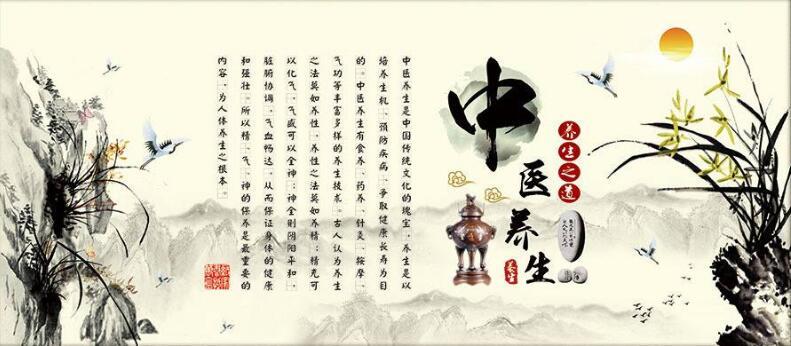 中医养生
养生之道
养生
中医养生是中国传统文化的瑰宝、养生是以
培养生机、预防疾病、争取健康长寿为目
的。中医养生有食养、药养、针灸、按摩、
气功等丰富多样的养生技术。古人认为养生
之法莫如养性、养性之法莫如养精；精充可
以化气、气盛可以全神；神全则阴阳平和、
脏腑协调、气血畅达、从而保证身体的健康
和强壮。所以精、气、神的保养是最重要的
内容、为人体养生之根本。